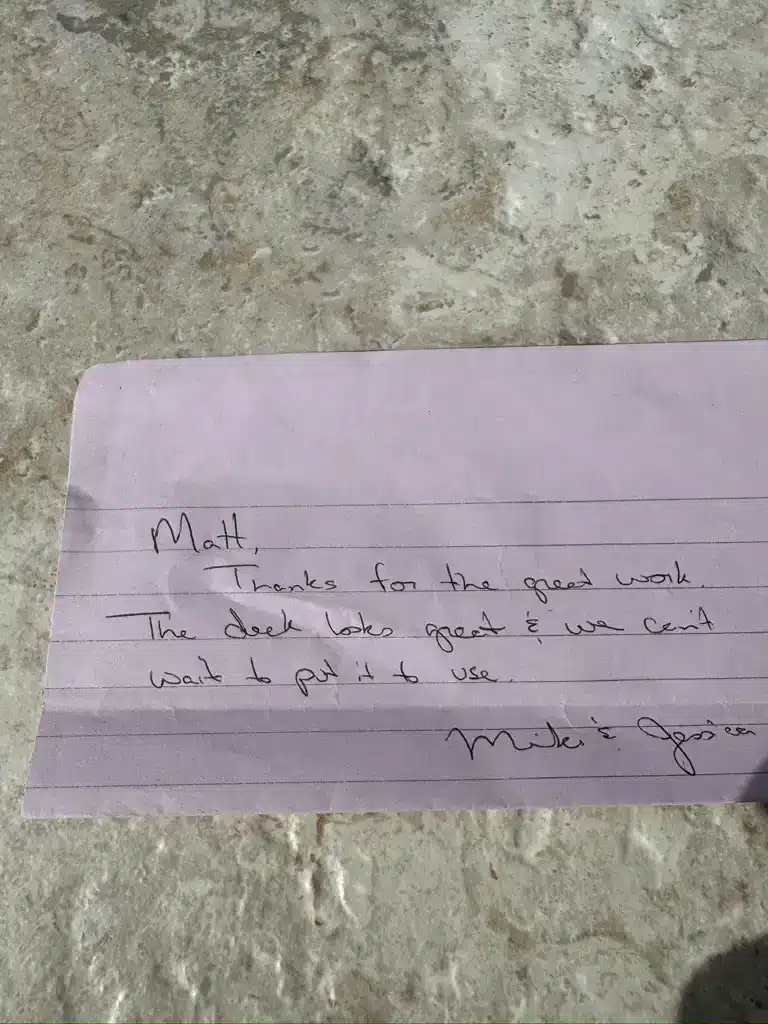 Matt,
Thanks for the great work.
The deck looks great & we can't
wait to put it to use.
Mike & Jessica